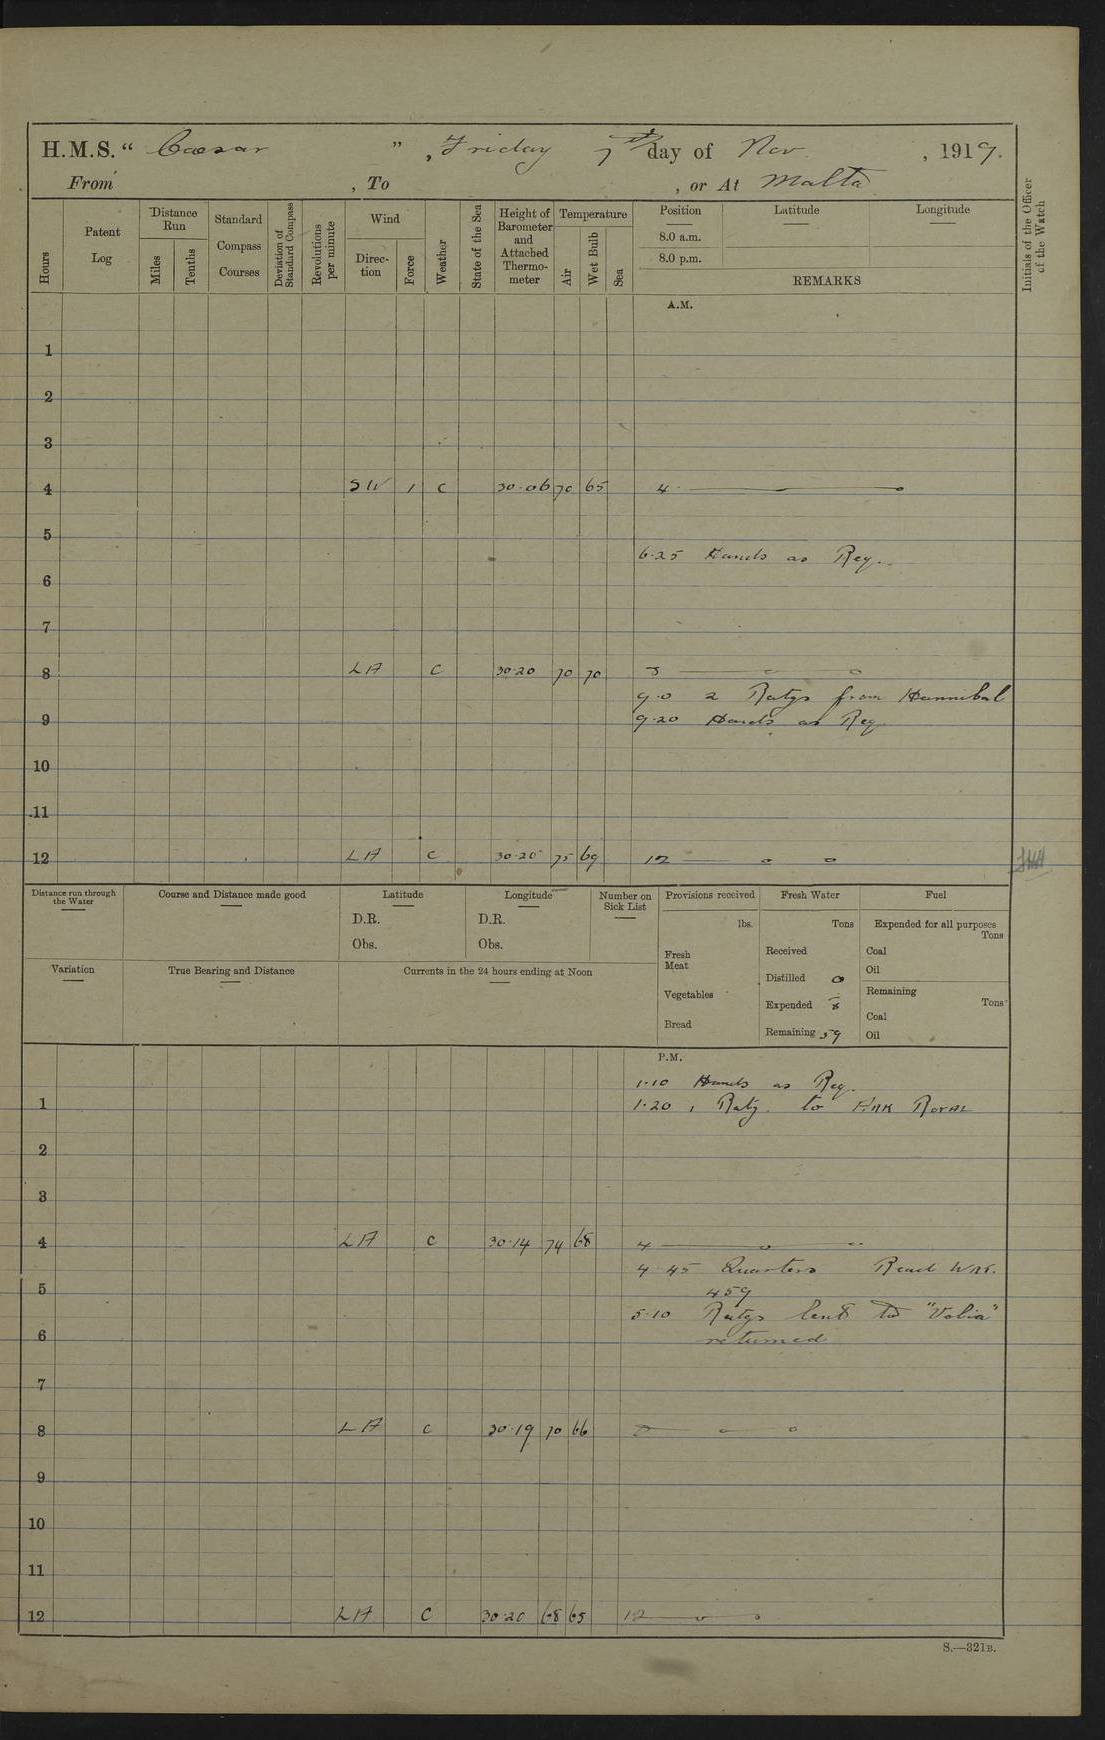 H.M.S. “ Cæsar ” , Friday 7th day of Nov. , 1919.
From , To , or At Malta
Hours
Patent Log
Distance Run
Miles
Tenths
Standard Compass Courses
Deviation of Standard Compass
Revolutions per minute
Wind
Direc-tion
Force
Weather
State of the Sea
Height of Barometer and Attached Thermo-meter
Temperature
Air
Wet Bulb
Sea
Position Latitude Longitude
8.0 a.m.
8.0 p.m.
REMARKS
Initials of the Officer of the Watch
A.M.
1
2
3
4 SW 1 C 30·06 70 65 4
5
6·25 Hands as Req.
6
7
8 LA C 30·20 70 70 8
9·0 2 Ratgs from Hannibal
9 9·20 Hands as Req
10
11
12 LA C 30·20 75 69 12
Distance run through the Water
Course and Distance made good
Latitude
D.R.
Obs.
Longitude
D.R.
Obs.
Number on Sick List
Provisions received
lbs.
Fresh Meat
Vegetables
Bread
Fresh Water
Tons
Received
Distilled 0
Expended
Remaining 59
Fuel
Expended for all purposes
Tons
Coal
Oil
Remaining
Tons
Coal
Oil
Variation
True Bearing and Distance
Currents in the 24 hours ending at Noon
P.M.
1·10 Hands as Req.
1 1·20 1 Ratg. to Royal
2
3
4 LA C 30·14 74 68 4
4 45 Quarters Read
5 459
5·10 Ratgs lent to
6 returned
7
8 LA C 30·19 70 66 8
9
10
11
12 LA C 30·20 68 65 12
S.—321B.